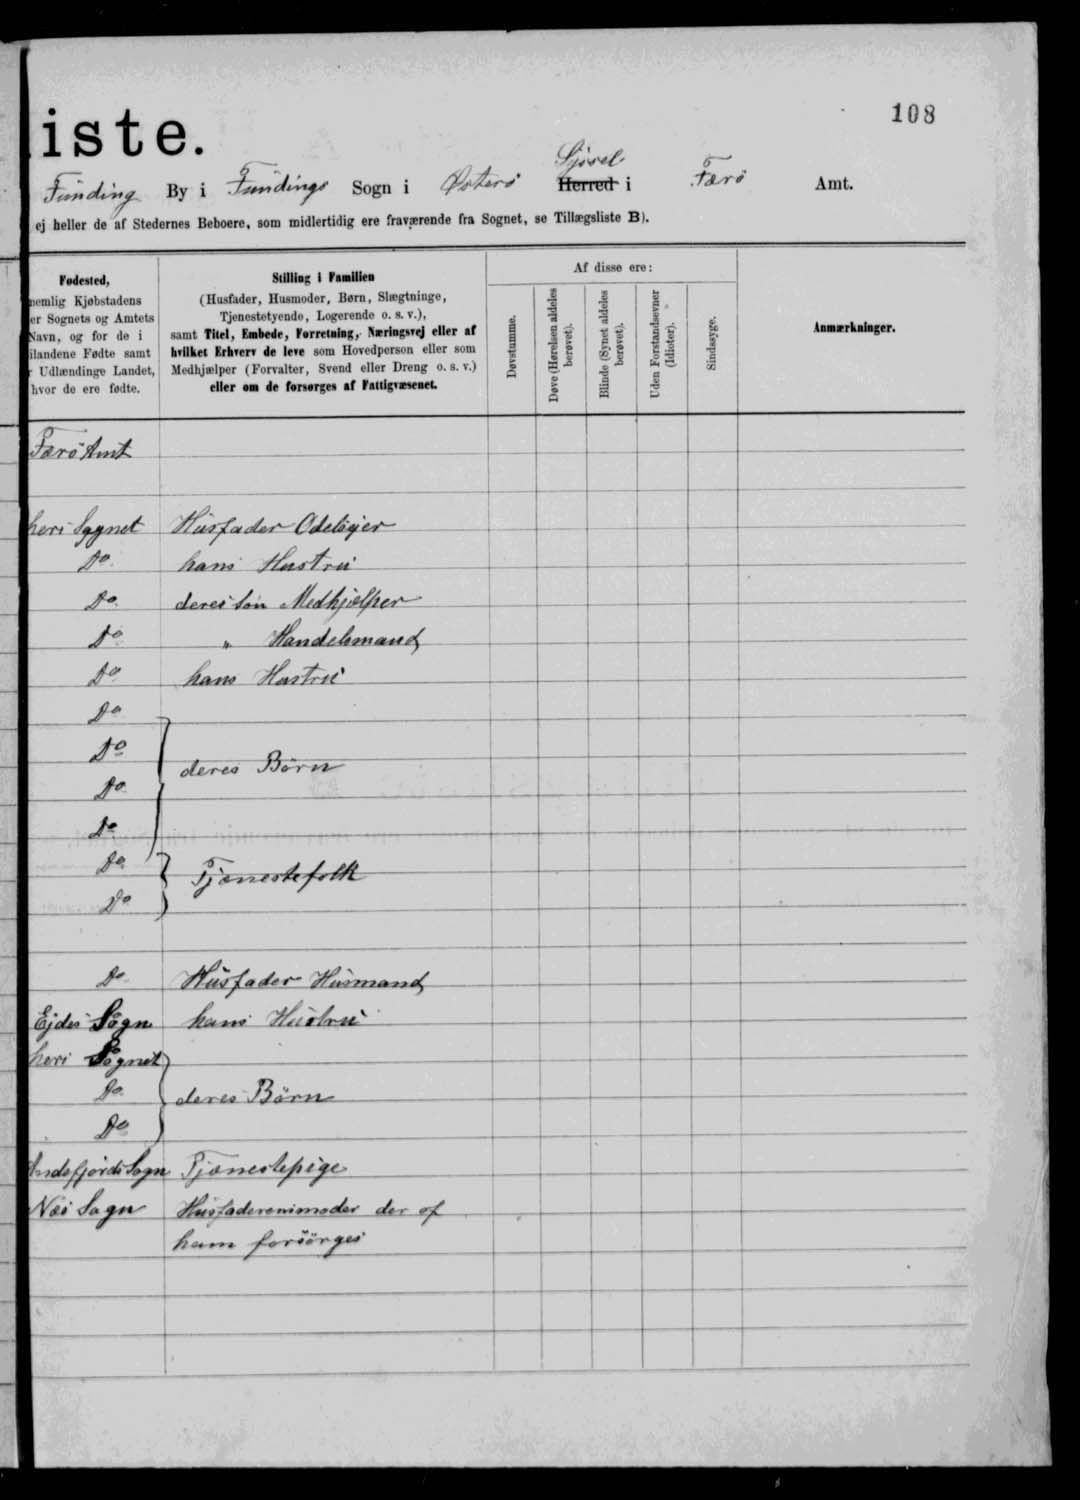 108
iste.
Funding By i Fundings Sogn i Østerø Herred i Færø Amt.
Syssel
ej heller de af Stedernes Beboere, som midlertidig ere fraværende fra Sognet, se Tillægsliste B).
Fødested,
nemlig Kjøbstadens
er Sognets og Amtets
Navn, og for de i
ilandene Fødte samt
Udlændinge Landet,
hvor de ere fødte.
Stilling i Familien
(Husfader, Husmoder, Børn, Slægtninge,
Tjenestetyende, Logerende o. s. v.),
samt Titel, Embede, Forretning, Næringsvej eller af
hvilket Erhverv de leve som Hovedperson eller som
Medhjælper (Forvalter, Svend eller Dreng o. s. v.)
eller om de forsørges af Fattigvæsenet.
Af disse ere:
Døvstumme.
Døve (Hørelsen aldeles
berøvet).
Blinde (Synet aldeles
berøvet).
Uden Forstandsevner
(Idioter).
Sindssyge.
Anmærkninger.
Færö Amt
heri Sognet Husfader Odelsejer
Do hans Hustru
Do deres Sön Medhjælper
Do " Handelsmand
Do hans Hustru
Do
Do
deres Börn
Do
Do
Do
Tjenestefolk
Do
Do Husfader Husmand
Ejdes Sogn hans Hustru
heri Sognet
Do deres Börn
Do
Andefjords Sogn Tjenestepige
Næs Sogn Husfaderens moder der af
ham forsörges